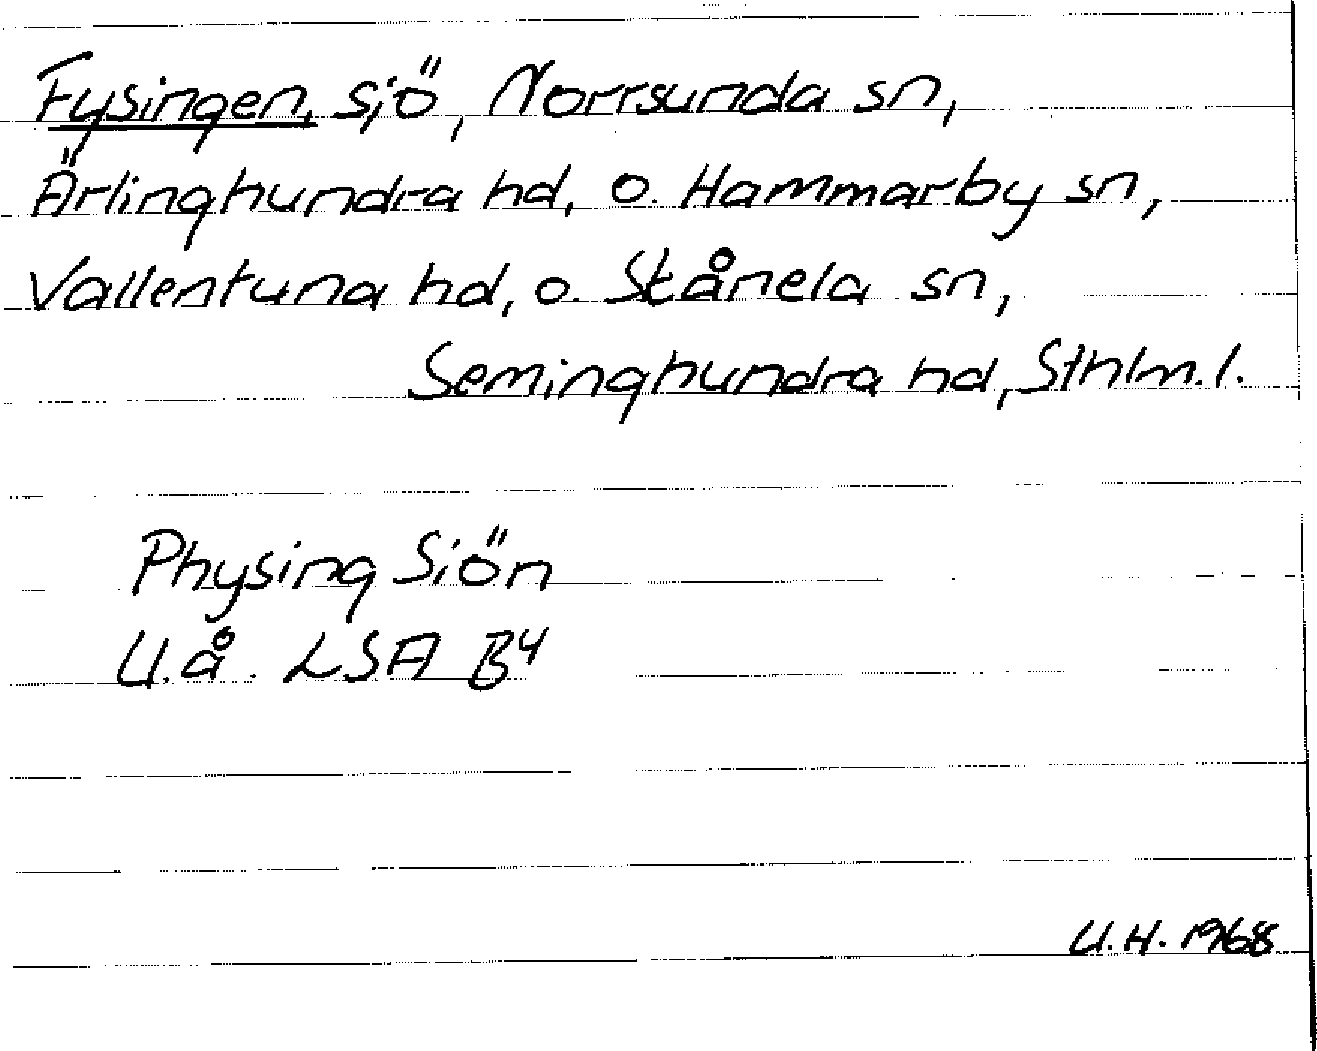 Fysingen, sjö, Norrsunda sn,
Ärlinghundra hd, o. Hammarby sn,
Vallentuna hd, o. Skånela sn,
Seminghundra hd, Sthlm. l.
Physing Siön
U.å. LSA B4
U.H. 1968